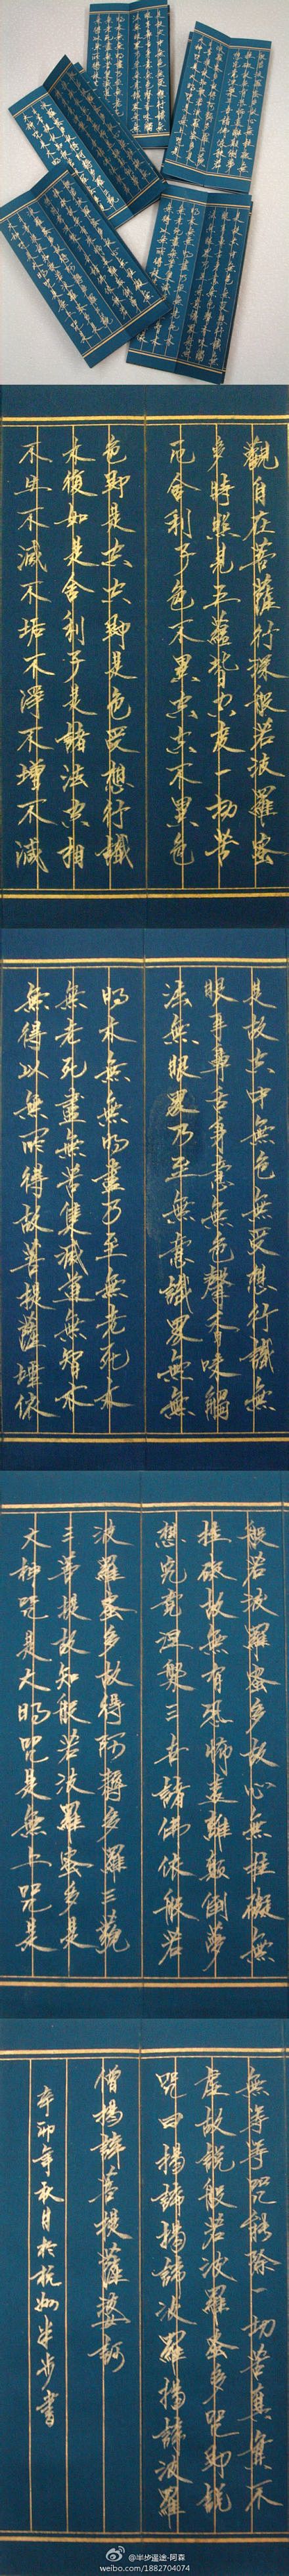 觀自在菩薩行深般若波羅蜜
多時照見五蘊皆空度一切苦
厄舍利子色不異空空不異色
色即是空空即是色受想行識
亦復如是舍利子是諸法空相
不生不滅不垢不淨不增不減
是故空中無色無受想行識無
眼耳鼻舌身意無色聲香味觸
法無眼界乃至無意識界無無
明亦無無明盡乃至無老死亦
無老死盡無苦集滅道無智亦
無得以無所得故菩提薩埵依
般若波羅蜜多故心無罣礙無
罣礙故無有恐怖遠離顛倒夢
想究竟涅槃三世諸佛依般若
波羅蜜多故得阿耨多羅三藐
三菩提故知般若波羅蜜多是
大神咒是大明咒是無上咒是
無等等咒能除一切苦真實不
虛故說般若波羅蜜多咒即說
咒曰揭諦揭諦波羅揭諦波羅
僧揭諦菩提薩婆訶
辛卯年秋月於杭州半步書
@半步遥途-阿森
weibo.com/1882704074